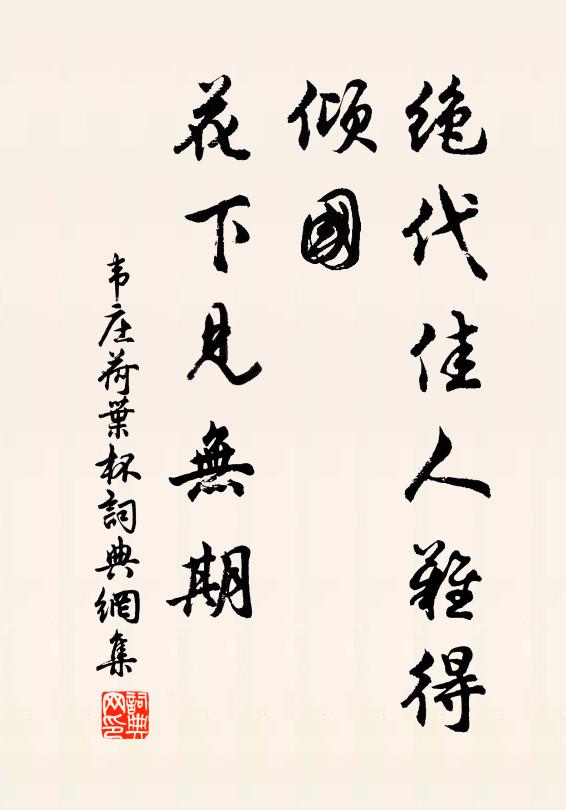 绝代佳人難得
傾國
花下見無期
韦庄荷葉杯詞典網集
詞典网印